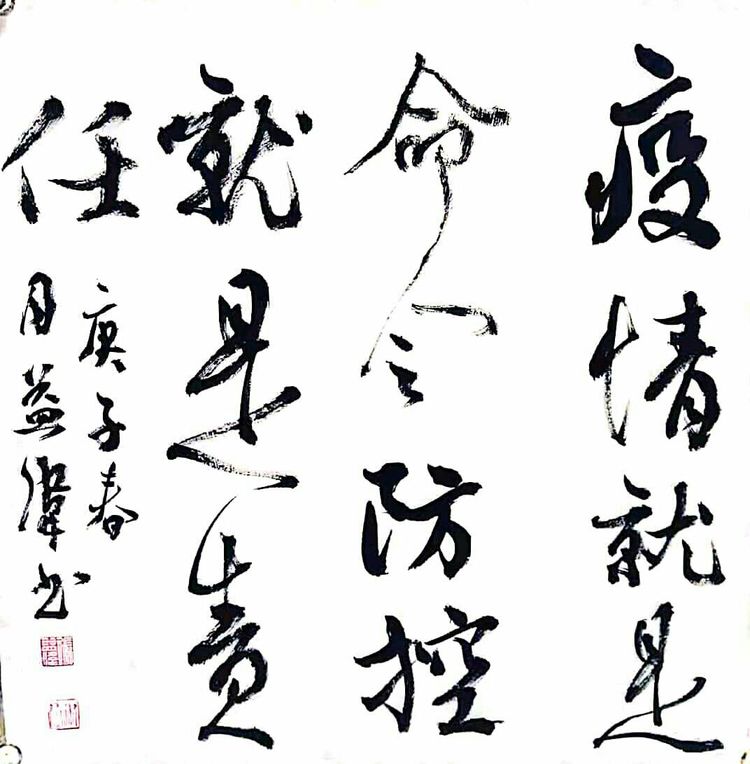 疫情就是
命令防控
就是責
任
庚子春
周益书